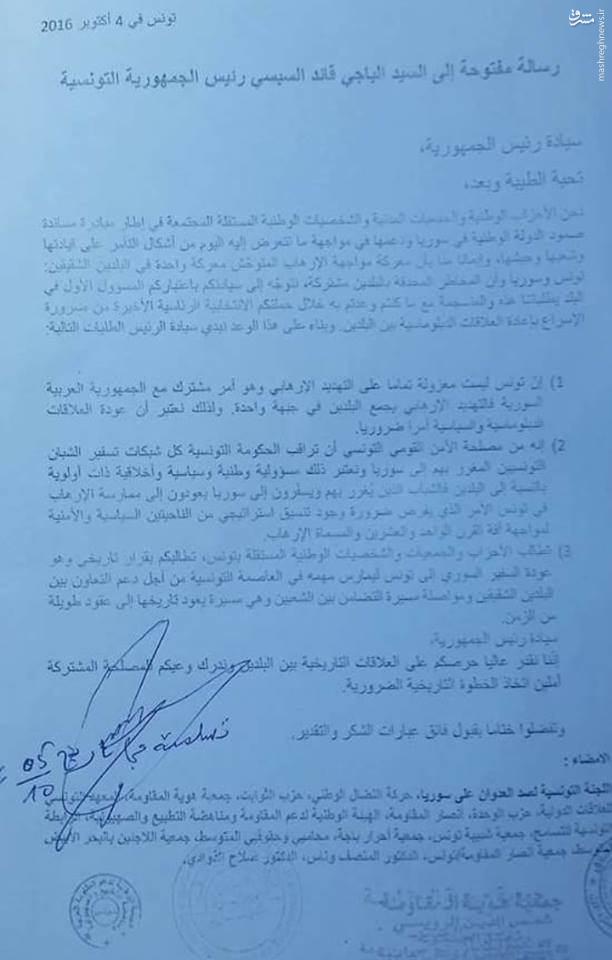 مشرق
mashreghnews.ir
تونس في 4 أكتوبر 2016
رسالة مفتوحة إلى السيد الباجي قائد السبسي رئيس الجمهورية التونسية
سيادة رئيس الجمهورية،
تحية الطيبة وبعد،
نحن الأحزاب الوطنية والجمعيات المدنية والشخصيات الوطنية المستقلة المجتمعة في إطار مبادرة مساندة
صمود الدولة الوطنية في سوريا ودعمها في مواجهة ما تتعرض إليه اليوم من أشكال التآمر على قيادتها
وشعبها وجيشها، وإيمانا منا بأن معركة مواجهة الإرهاب المتوحش معركة واحدة في البلدين الشقيقين:
تونس وسوريا وأن المخاطر المحدقة بالبلدين مشتركة، نتوجه إلى سيادتكم باعتباركم المسؤول الأول في
البلد بطلباتنا هذه والمنسجمة مع ما كنتم وعدتم به خلال حملتكم الانتخابية الرئاسية الأخيرة من ضرورة
الإسراع بإعادة العلاقات الدبلوماسية بين البلدين. وبناء على هذا الوعد نبدي سيادة الرئيس الطلبات التالية:
1) إنّ تونس ليست معزولة تماما على التهديد الإرهابي وهو أمر مشترك مع الجمهورية العربية
السورية فالتهديد الإرهابي يجمع البلدين في جبهة واحدة. ولذلك نعتبر أن عودة العلاقات
الدبلوماسية والسياسية أمرا ضروريا.
2) إنه من مصلحة الأمن القومي التونسي أن تراقب الحكومة التونسية كل شبكات تسفير الشبان
التونسيين المغرر بهم إلى سوريا ونعتبر ذلك مسؤولية وطنية وسياسية وأخلاقية ذات أولوية
بالنسبة الى البلدين فالشباب الذين يُغرر بهم ويسفرون إلى سوريا يعودون إلى ممارسة الإرهاب
في تونس الأمر الذي يفرض ضرورة وجود تنسيق استراتيجي من الناحيتين السياسية والأمنية
لمواجهة آفة القرن الواحد والعشرين والمسماة الإرهاب.
3) تطالب الأحزاب والجمعيات والشخصيات الوطنية المستقلة بتونس، تطالبكم بقرار تاريخي وهو
عودة السفير السوري الى تونس ليمارس مهمه في العاصمة التونسية من أجل دعم التعاون بين
البلدين الشقيقين ومواصلة مسيرة التضامن بين الشعبين وهي مسيرة يعود تاريخها إلى عقود طويلة
من الزمن.
سيادة رئيس الجمهورية،
إننا نقدر عاليا حرصكم على العلاقات التاريخية بين البلدين وندرك وعيكم للمصلحة المشتركة
آملين اتخاذ الخطوة التاريخية الضرورية.
وتفضلوا ختاما بقبول فائق عبارات الشكر والتقدير.
05
10
الامضاء :
اللجنة التونسية لصد العدوان على سوريا، حركة النضال الوطني، حزب الثوابت، جمعية هوية المقاومة، المعهد التونسي
للعلاقات الدولية، حزب الوحدة، أنصار المقاومة، الهيئة الوطنية لدعم المقاومة ومناهضة التطبيع والصهيونية، الرابطة
التونسية للتسامح، جمعية شبيبة تونس، جمعية أحرار بنجة، محاميي وحقوقيي المتوسط، جمعية اللاجئين بالبحر الأبيض
المتوسط، جمعية أنصار المقاومة بتونس، الدكتور المنصف وناس، الدكتور صلاح الداودي.